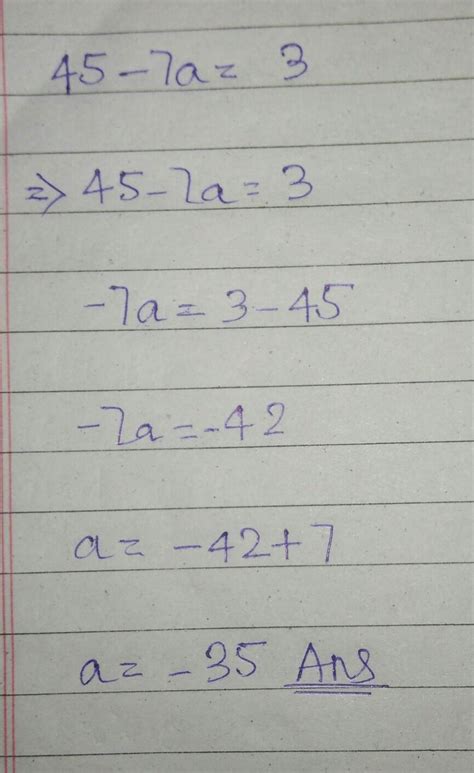 45-7a= 3
=> 45-7a=3
-7a=3-45
-7a=-42
a= -42+7
a= -35 Ans